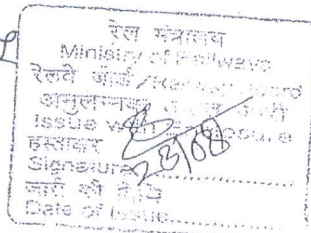 रेल मंत्रालय
Ministry of Railways
रेलवे बोर्ड/Railway Board
अनुलग्नक
Issue with
हस्ताक्षर
Signature..................
28/08
जारी की तिथि
Date of Issue..................